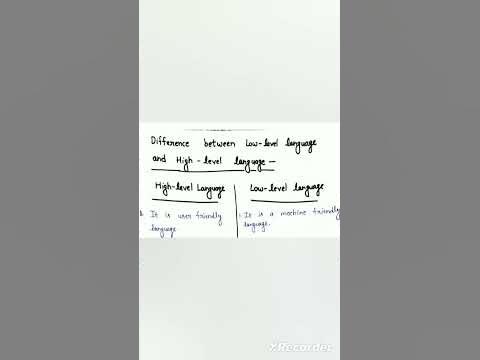 Difference between Low-level language
and High-level language -
High-level Language
Low-level language
It is user friendly
language
1. It is a machine friendly
language.
XRecorder